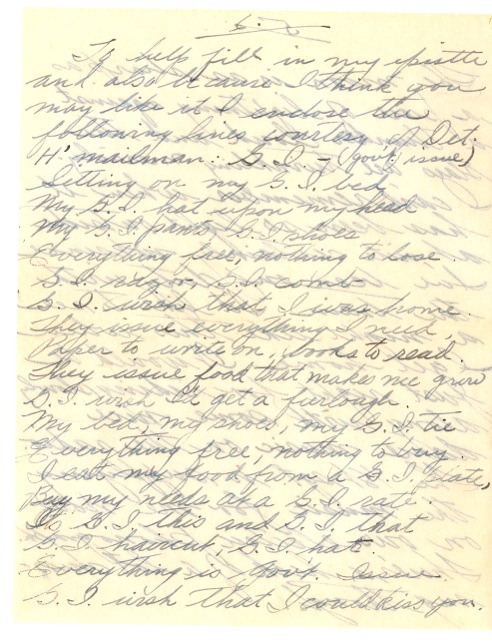 To help fill in my epistle
and also because I think you
may like it I enclose the
following lines courtesy of Det.
"H" mailman: G.I. - (govt. issue)
Sitting on my G.I. bed
My G.I. hat upon my head
My G.I. pants, G.I. shoes
Everything free, nothing to lose.
G.I. razor, G.I. comb
G.I. wish that I was home.
They issue everything I need,
Paper to write on, books to read.
They issue food that makes me grow
G.I. wish I'd get a furlough.
My bed, my shoes, my G.I. tie
Everything free, nothing to buy.
I eat my food from a G.I. plate,
Buy my needs at a G.I. rate.
It's G.I. this and G.I. that
G.I. haircut, G.I. hat.
Everything is Govt. Issue
G.I. wish that I could kiss you.